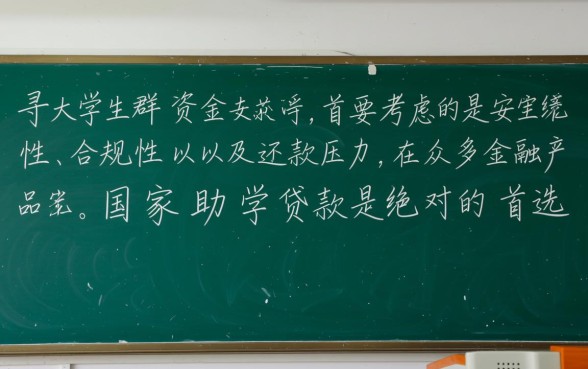 寻大学生群资金获得,首要考虑的是安全
性、合规性以以及还款压力,在众多金融产
品。国家助学贷款是绝对的首选